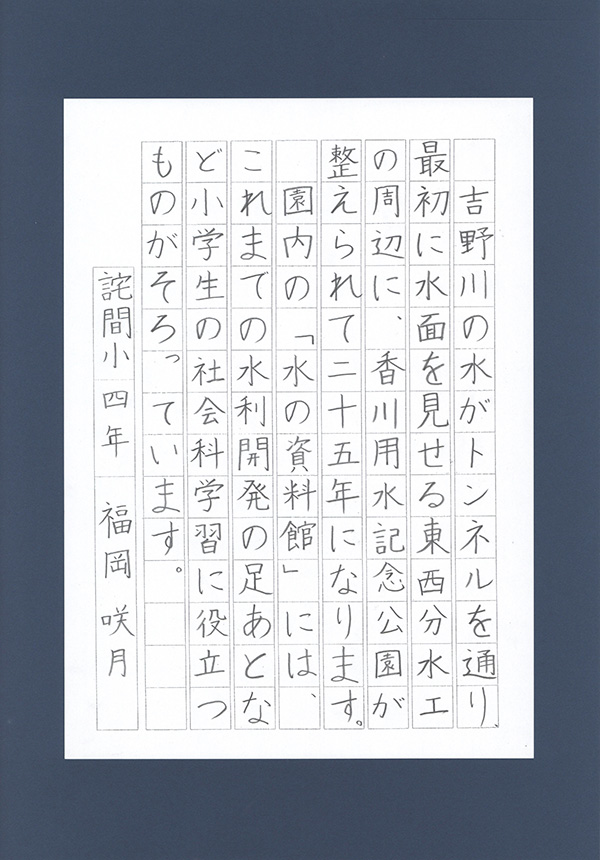 吉野川の水がトンネルを通り、
最初に水面を見せる東西分水工
の周辺に、香川用水記念公園が
整えられて二十五年になります。
　園内の「水の資料館」には、
これまでの水利開発の足あとな
ど小学生の社会科学習に役立つ
ものがそろっています。
詫間小 四年 福岡 咲月